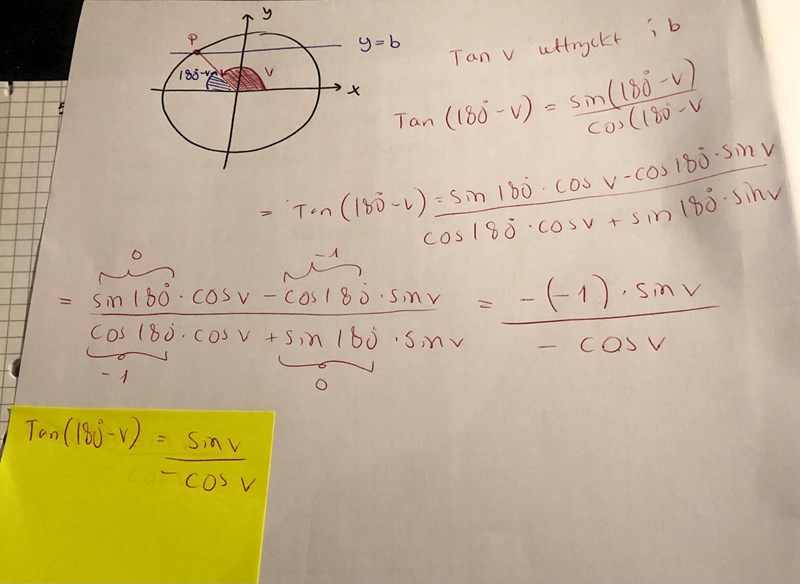 y
P
y=b
180°-v
v
x
Tan v uttryckt i b
Tan (180°-v) = sin(180°-v) / cos(180°-v
= Tan (180°-v) = sin 180° · cos v - cos 180° · sin v / cos 180° · cos v + sin 180° · sin v
0 -1
= sin 180° · cos v - cos 180° · sin v / cos 180° · cos v + sin 180° · sin v = -(-1) · sin v / - cos v
-1 0
Tan(180°-v) = sin v / - cos v